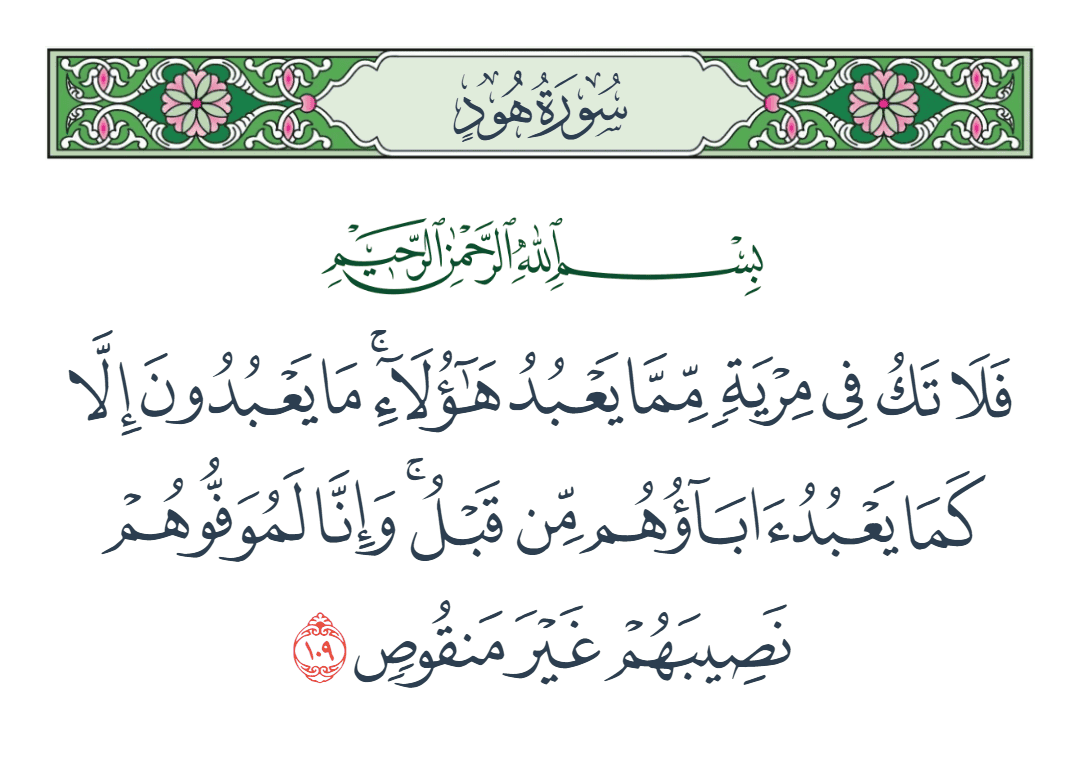 سُورَةُ هُودٍ
بِسْمِ ٱللَّهِ ٱلرَّحْمَٰنِ ٱلرَّحِيمِ
فَلَا تَكُ فِى مِرْيَةٍ مِّمَّا يَعْبُدُ هَٰٓؤُلَآءِ ۚ مَا يَعْبُدُونَ إِلَّا
كَمَا يَعْبُدُ ءَابَآؤُهُم مِّن قَبْلُ ۚ وَإِنَّا لَمُوَفُّوهُمْ
نَصِيبَهُمْ غَيْرَ مَنقُوصٍ ١٠٩